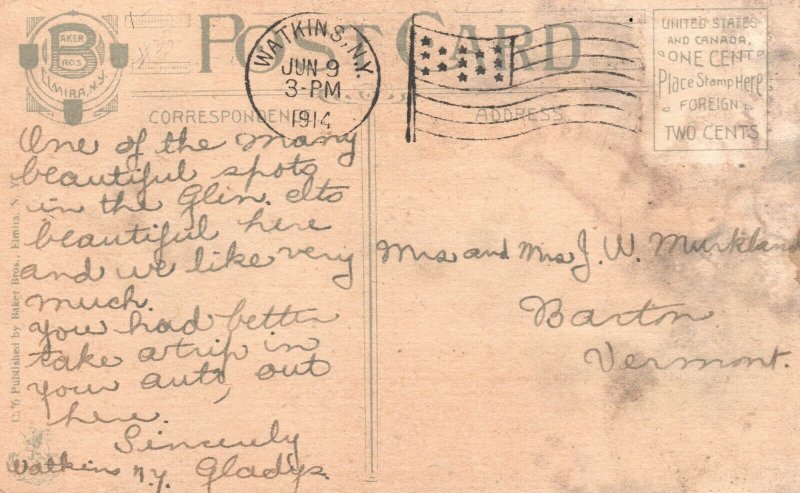 BAKER
BROS
ELMIRA, N.Y.
POST CARD
WATKINS, N.Y.
JUN 9
3-PM
1914
UNITED STATES
AND CANADA,
ONE CENT
Place Stamp Here
FOREIGN
TWO CENTS
CORRESPONDEN
ADDRESS
One of the many
beautiful spots
in the Glen. Its
beautiful here
and we like very
much.
You had better
take a trip in
your auto, out
here.
Sincerely
Gladys.
Watkins N.Y.
Mrs and Mrs J. W. Murkland
Barton
Vermont.
Published by Baker Bros., Elmira, N. Y.